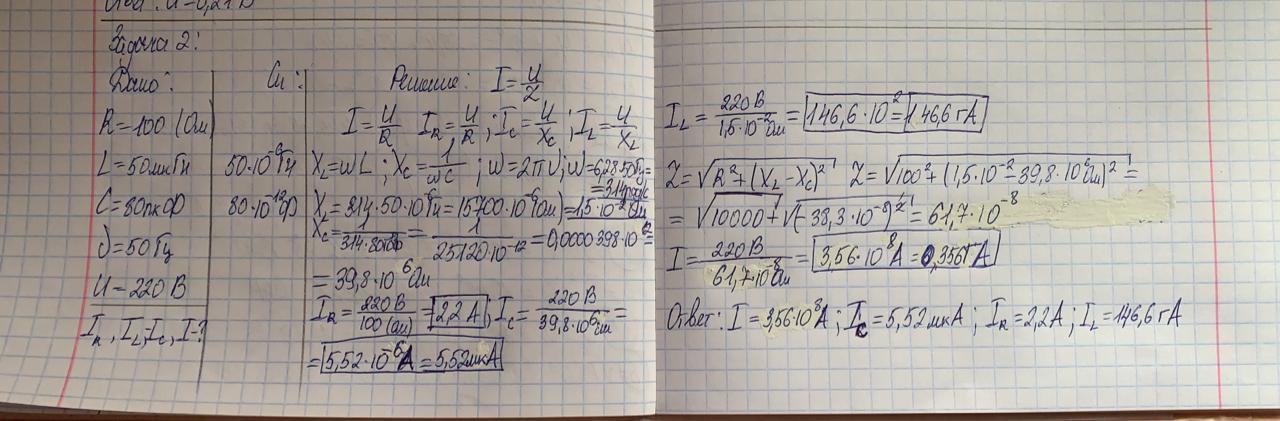 Задача 2:
Дано:
R=100 (Ом)
L=50мкГн
C=80пкФ
ν=50Гц
U=220В
I_R, I_L, I_C, I-?
Си:
50·10^-6Гн
80·10^-12Ф
Решение: I=U/Z
I=U/R I_R=U/R; I_C=U/X_C; I_L=U/X_L
X_L=ωL; X_C=1/ωC; ω=2πν; ω=6,28·50Гц=
=314рад/с
X_L=314·50·10^-6Гн=15700·10^-6(Ом)=1,5·10^-2Ом
X_C=1/314·80пФ=1/25120·10^-12=0,0000398·10^12=
=39,8·10^6Ом
I_R=220В/100(Ом)=2,2А; I_C=220В/39,8·10^6Ом=
=5,52·10^-6А=5,52мкА
I_L=220В/1,5·10^-2Ом=146,6·10^2=146,6гА
Z=√R²+(X_L-X_C)² Z=√100²+(1,5·10^-2-39,8·10^6Ом)²=
=√10000+√(-38,3·10^-8)²=61,7·10^-8
I=220В/61,7·10^-8Ом=3,56·10^8А=0,356ГА
Ответ: I=3,56·10^8А; I_C=5,52мкА; I_R=2,2А; I_L=146,6гА